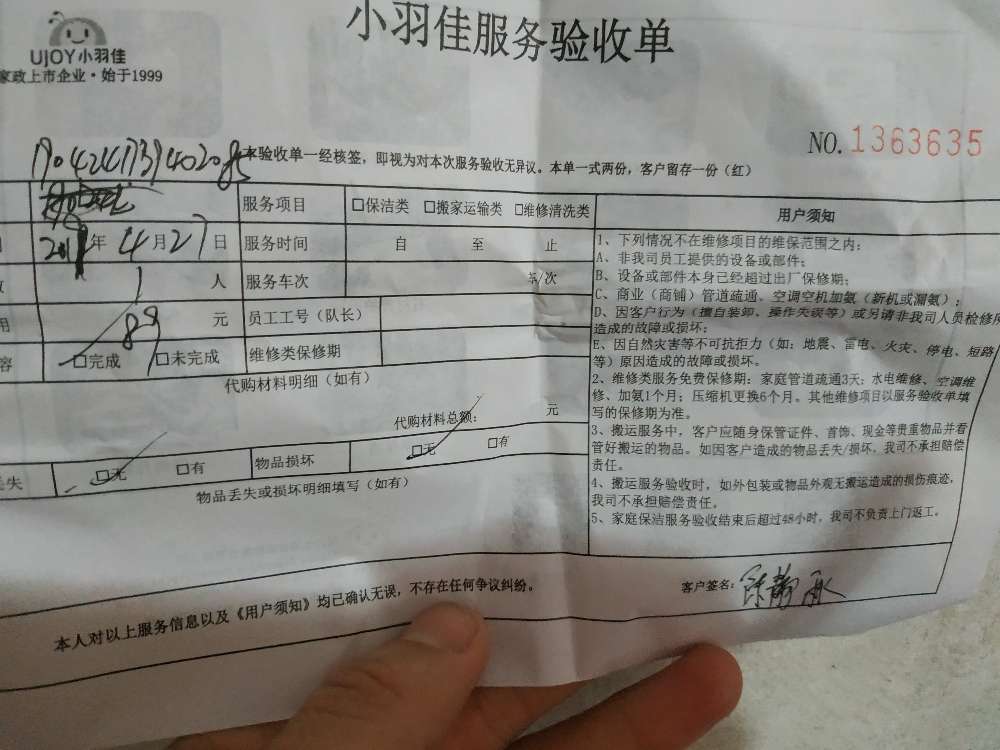 小羽佳服务验收单
UJOY小羽佳
家政上市企业·始于1999
NO. 1363635
本验收单一经核签，即视为对本次服务验收无异议。本单一式两份，客户留存一份（红）
服务项目 □保洁类 □搬家运输类 □维修清洗类
年 4月27日 服务时间 自 至 止
1 人 服务车次 车/次
用 89 元 员工工号（队长）
容 □完成 □未完成 维修类保修期
代购材料明细（如有）
代购材料总额： 元
丢失 □无 □有 物品损坏 □无 □有
物品丢失或损坏明细填写（如有）
用户须知
1、下列情况不在维修项目的维保范围之内：
A、非我司员工提供的设备或部件；
B、设备或部件本身已经超过出厂保修期；
C、商业（商铺）管道疏通、空调空机加氨（新机或漏氨）；
D、因客户行为（擅自装卸、操作失误等）或另请非我司人员检修所
造成的故障或损坏；
E、因自然灾害等不可抗拒力（如：地震、雷电、火灾、停电、短路
等）原因造成的故障或损坏。
2、维修类服务免费保修期：家庭管道疏通3天；水电维修、空调维
修、加氨1个月；压缩机更换6个月。其他维修项目以服务验收单填
写的保修期为准。
3、搬运服务中，客户应随身保管证件、首饰、现金等贵重物品并看
管好搬运的物品。如因客户造成的物品丢失/损坏，我司不承担赔偿
责任。
4、搬运服务验收时，如外包装或物品外观无搬运造成的损伤痕迹，
我司不承担赔偿责任。
5、家庭保洁服务验收结束后超过48小时，我司不负责上门返工。
本人对以上服务信息以及《用户须知》均已确认无误，不存在任何争议纠纷。
客户签名：